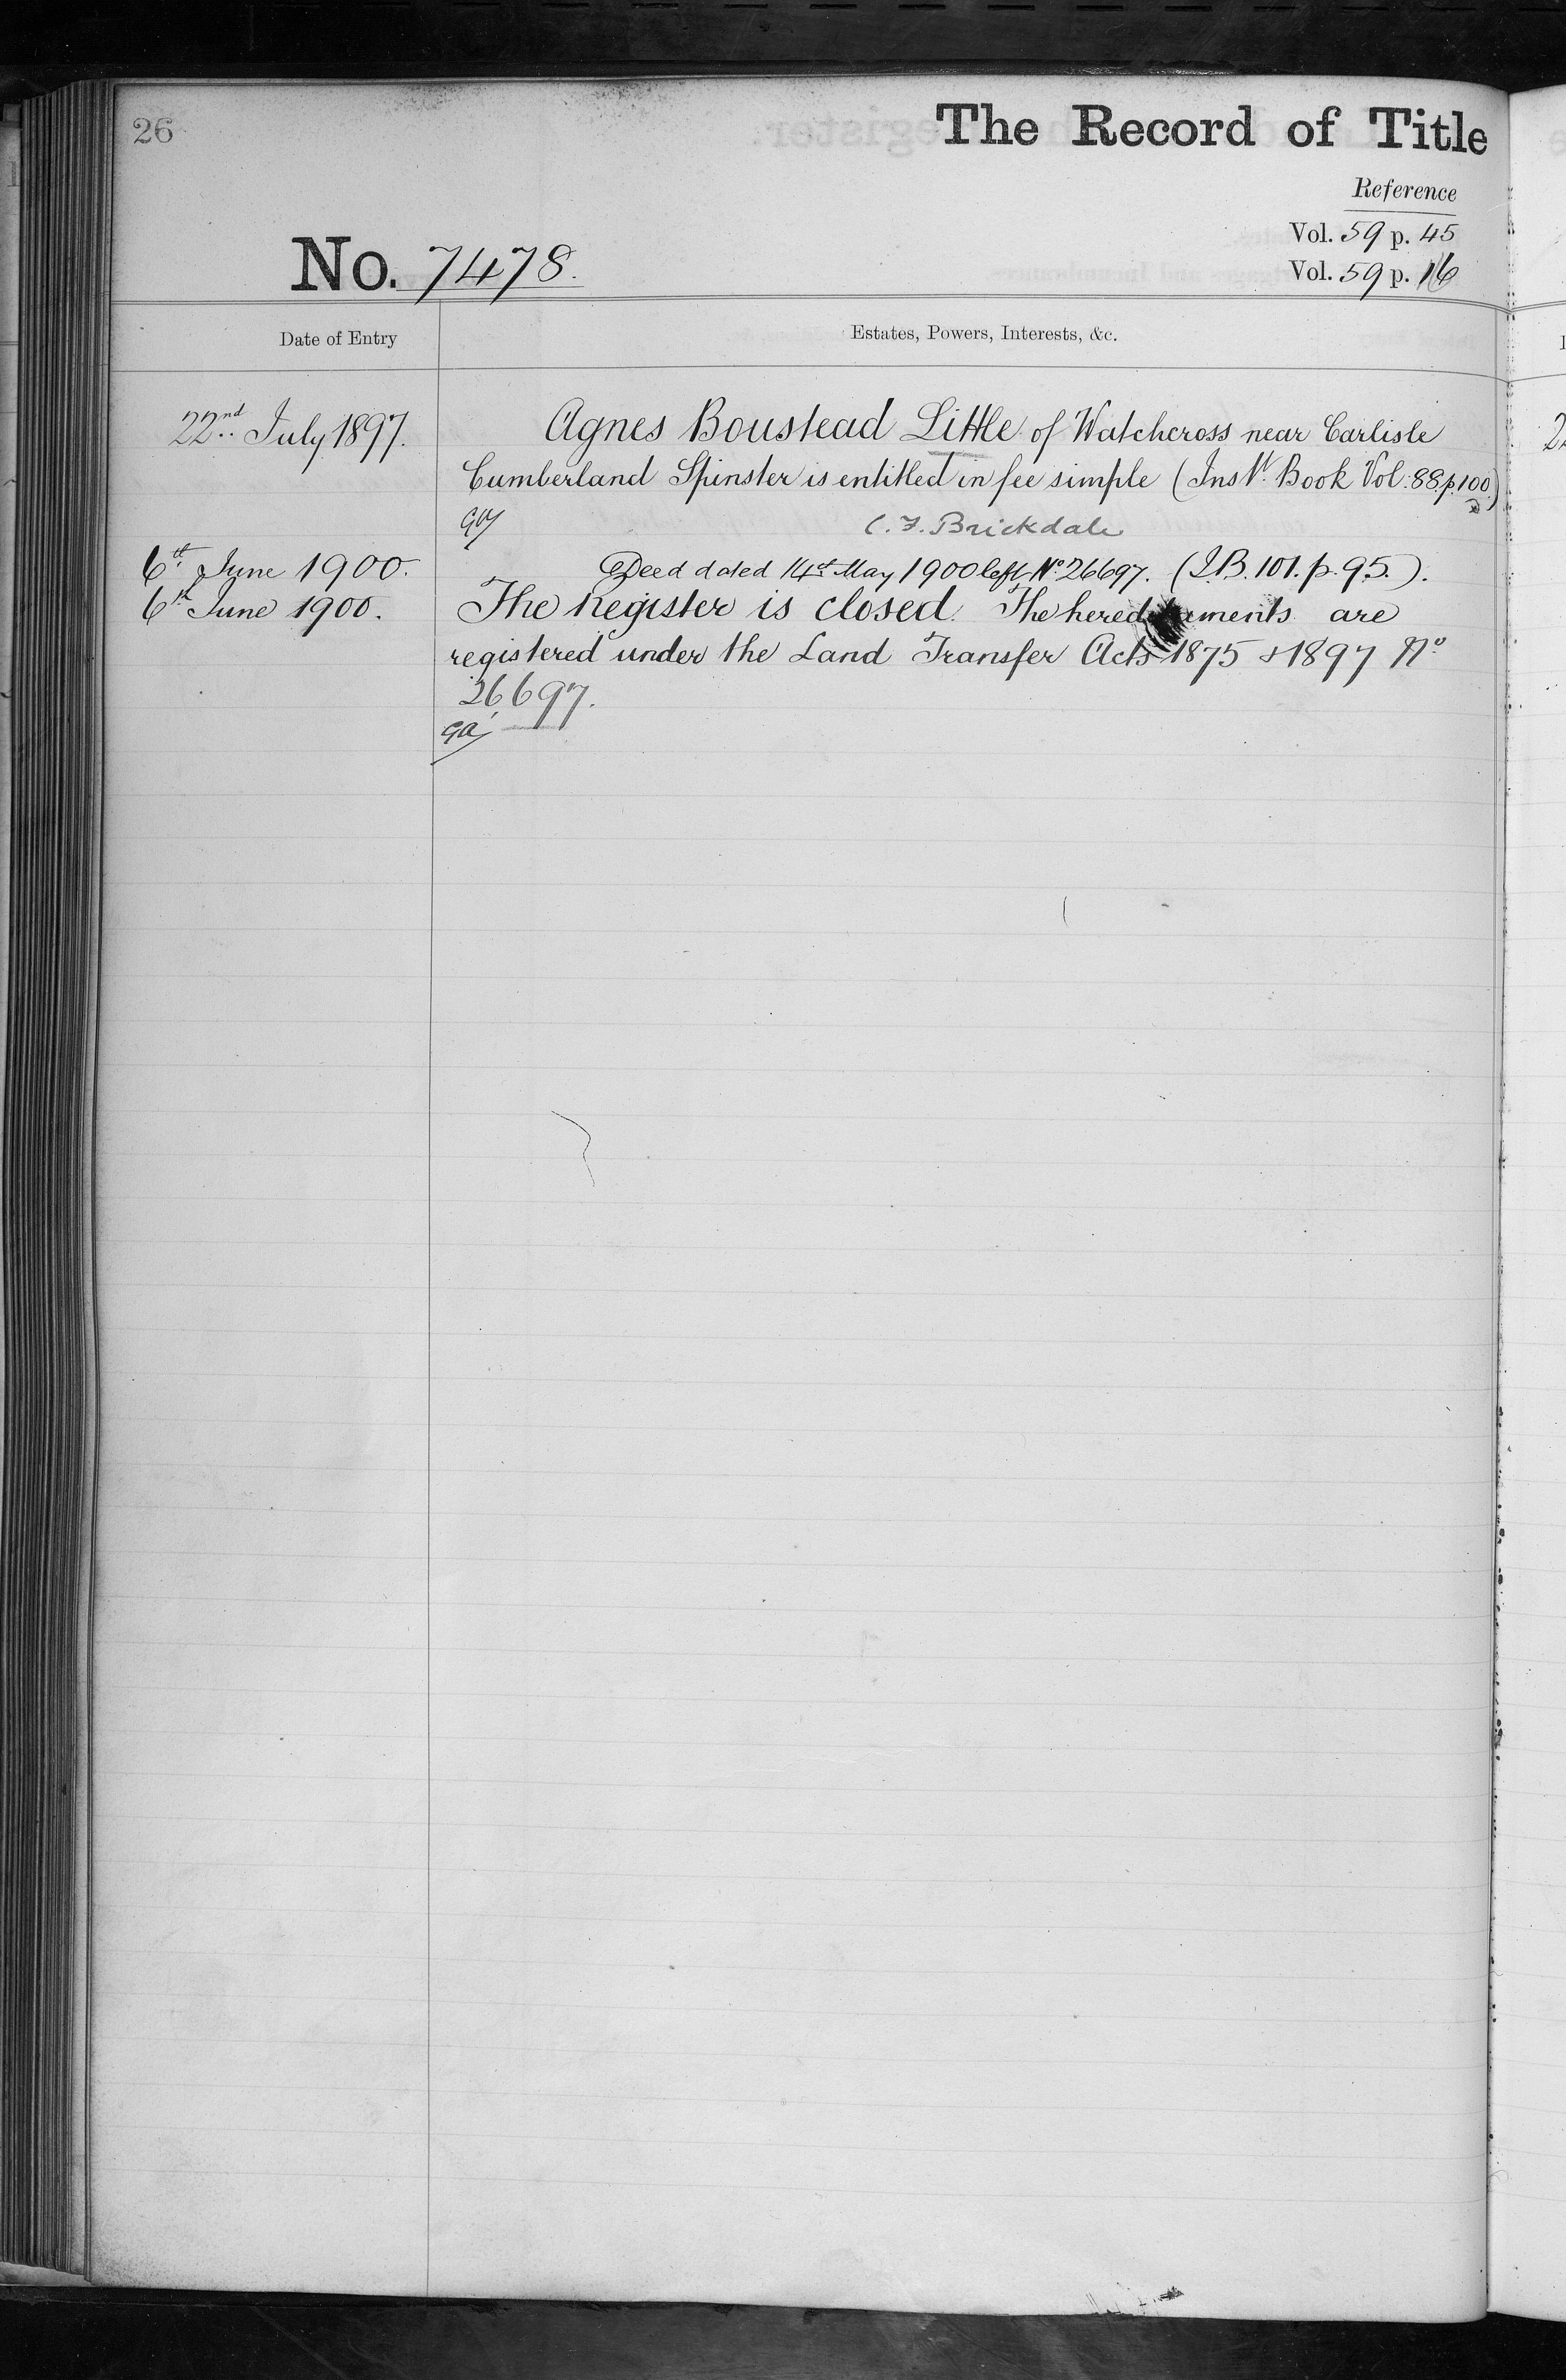 26
The Record of Title
Reference
Vol. 59 p. 45
No. 7478.
Vol. 59 p. 16
Date of Entry
Estates, Powers, Interests, &c.
22nd July 1897. Agnes Boustead Little of Watchcross near Carlisle
Cumberland Spinster is entitled in fee simple (Inst. Book Vol: 88. p. 100)
C. F. Brickdale
6th June 1900. Deed dated 14th May 1900 left No. 26697. (I.B. 101. p. 95.).
6th June 1900. The Register is closed. The hereditaments are
registered under the Land Transfer Acts 1875 & 1897 No
26697.